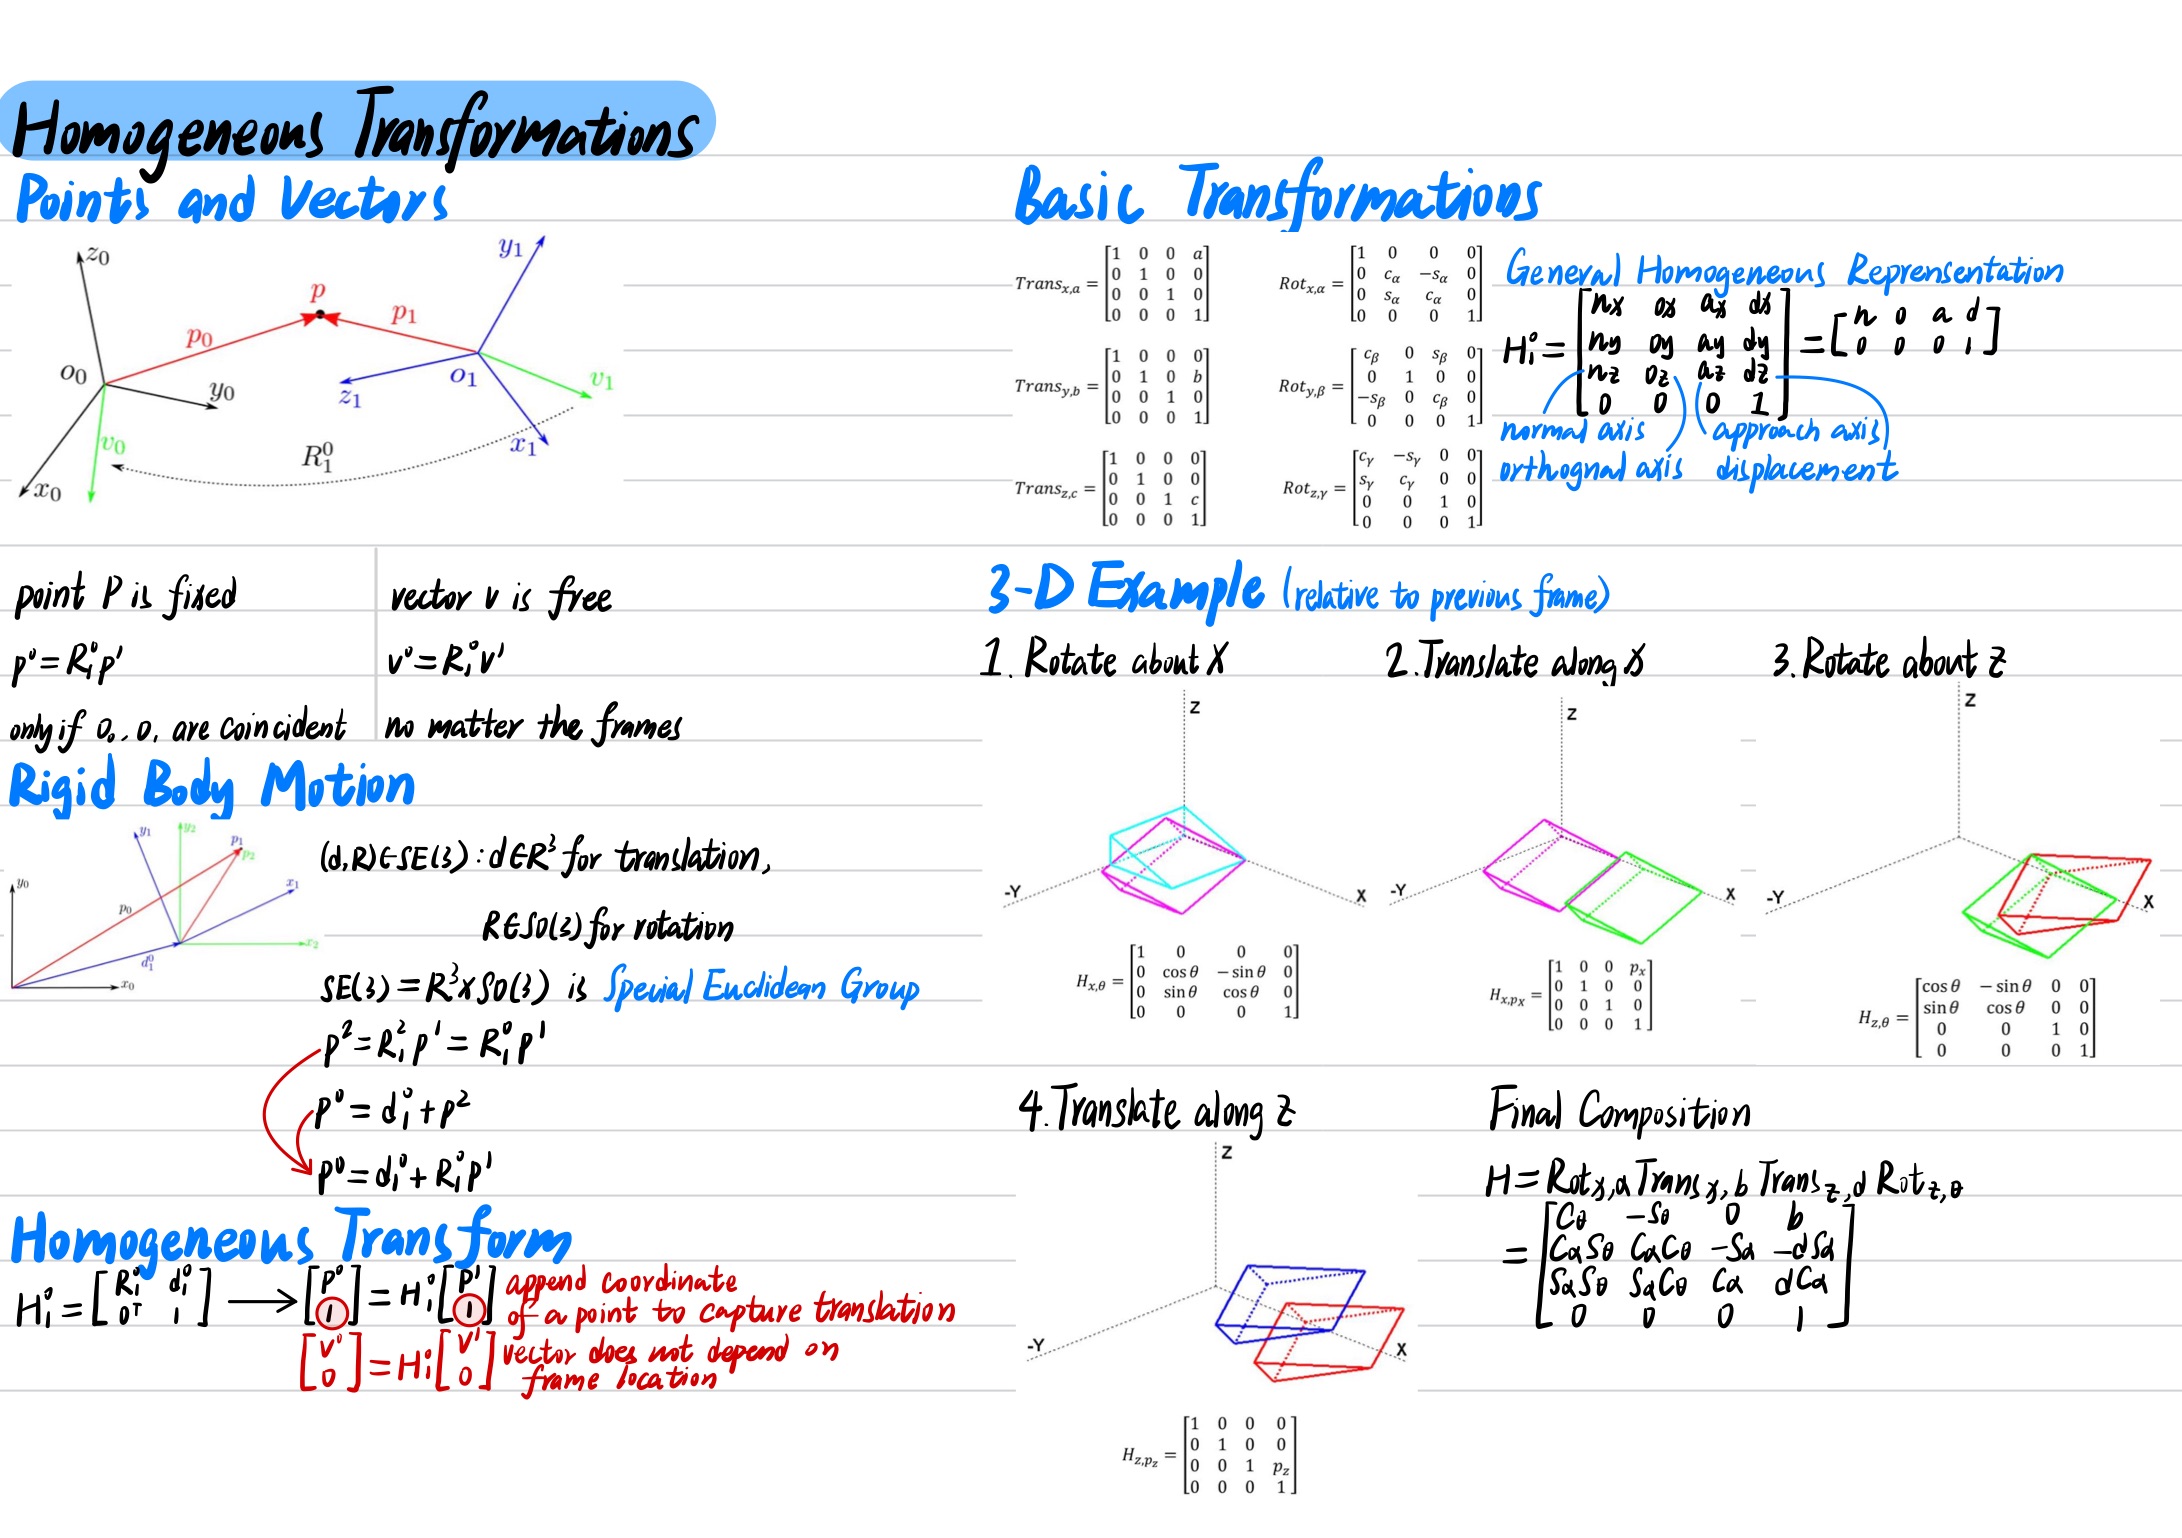 Homogeneous Transformations
Points and Vectors
z₀
y₁
p
p₀
p₁
o₀
y₀
z₁
o₁
v₁
v₀
x₁
R₁⁰
x₀
point P is fixed
p⁰ = R₁⁰ p¹
only if O₀, O₁ are coincident
vector v is free
v⁰ = R₁⁰ v¹
no matter the frames
Rigid Body Motion
y₁
y₂
p₁
p₂
y₀
x₁
p₀
x₂
d₁⁰
x₀
(d,R)∈SE(3) : d∈R³ for translation,
R∈SO(3) for rotation
SE(3) = R³×SO(3) is Special Euclidean Group
p² = R₁² p¹ = R₁⁰ p¹
p⁰ = d₁⁰ + p²
p⁰ = d₁⁰ + R₁⁰ p¹
Homogeneous Transform
H₁⁰ = [R₁⁰ d₁⁰; 0ᵀ 1] → [P⁰; 1] = H₁⁰ [P¹; 1]
append coordinate
of a point to capture translation
[V⁰; 0] = H₁⁰ [V¹; 0]
vector does not depend on
frame location
Basic Transformations
Trans_{x,a} = [1 0 0 a; 0 1 0 0; 0 0 1 0; 0 0 0 1]
Rot_{x,α} = [1 0 0 0; 0 c_α −s_α 0; 0 s_α c_α 0; 0 0 0 1]
Trans_{y,b} = [1 0 0 0; 0 1 0 b; 0 0 1 0; 0 0 0 1]
Rot_{y,β} = [c_β 0 s_β 0; 0 1 0 0; −s_β 0 c_β 0; 0 0 0 1]
Trans_{z,c} = [1 0 0 0; 0 1 0 0; 0 0 1 c; 0 0 0 1]
Rot_{z,γ} = [c_γ −s_γ 0 0; s_γ c_γ 0 0; 0 0 1 0; 0 0 0 1]
General Homogeneous Reprensentation
H₁⁰ = [nx ox ax dx; ny oy ay dy; nz oz az dz; 0 0 0 1] = [n o a d; 0 0 0 1]
normal axis
approach axis
orthognal axis
displacement
3-D Example (relative to previous frame)
1. Rotate about X
Z
-Y
X
H_{x,θ} = [1 0 0 0; 0 cos θ − sin θ 0; 0 sin θ cos θ 0; 0 0 0 1]
2. Translate along X
Z
-Y
X
H_{x,p_x} = [1 0 0 p_x; 0 1 0 0; 0 0 1 0; 0 0 0 1]
3. Rotate about z
Z
-Y
X
H_{z,θ} = [cos θ − sin θ 0 0; sin θ cos θ 0 0; 0 0 1 0; 0 0 0 1]
4. Translate along z
Z
-Y
X
H_{z,p_z} = [1 0 0 0; 0 1 0 0; 0 0 1 p_z; 0 0 0 1]
Final Composition
H = Rot_{x,α} Trans_{x,b} Trans_{z,d} Rot_{z,θ}
= [Cθ −Sθ 0 b; CαSθ CαCθ −Sα −dSα; SαSθ SαCθ Cα dCα; 0 0 0 1]